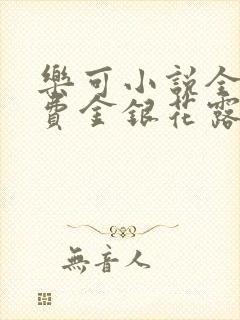 樂可小說全
費金銀花露
無音人